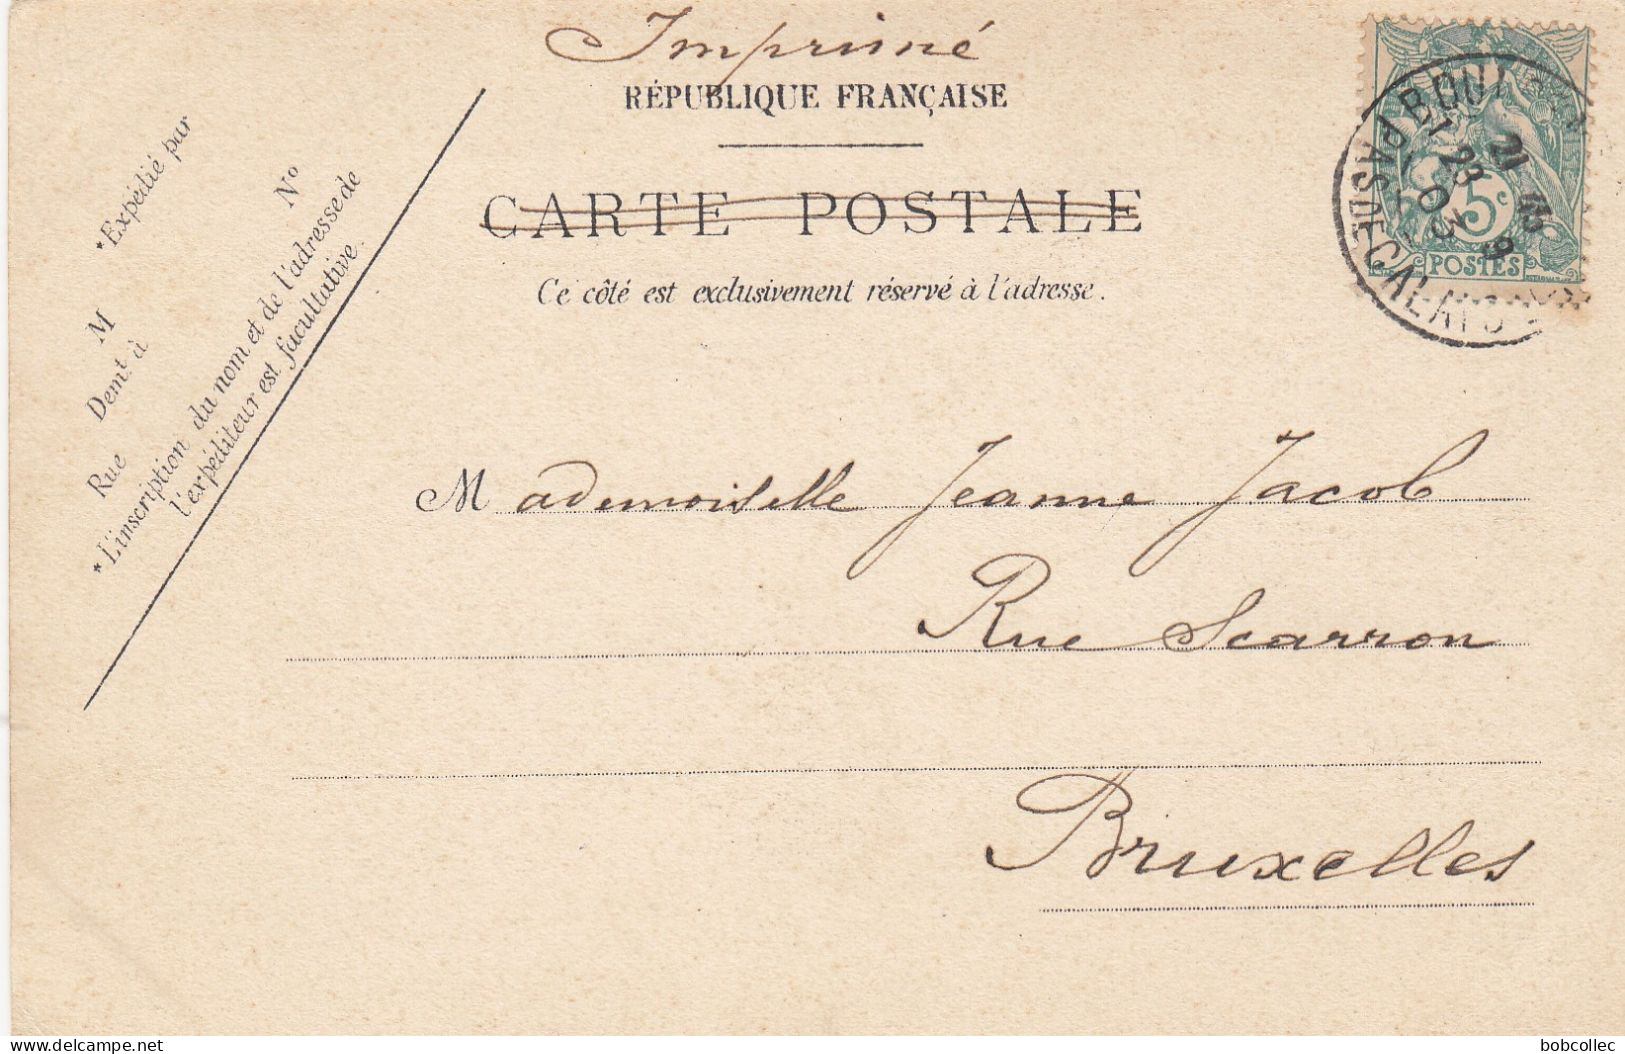 Imprimé
RÉPUBLIQUE FRANÇAISE
CARTE POSTALE
Ce côté est exclusivement réservé à l'adresse.
*Expédié par
M
Demt à
Rue
N°
*L'inscription du nom et de l'adresse de
l'expéditeur est facultative.
5c
POSTES
PAS DE CALAIS
Mademoiselle Jeanne Jacob
Rue Scarron
Bruxelles
delcampe.net
bobcollec